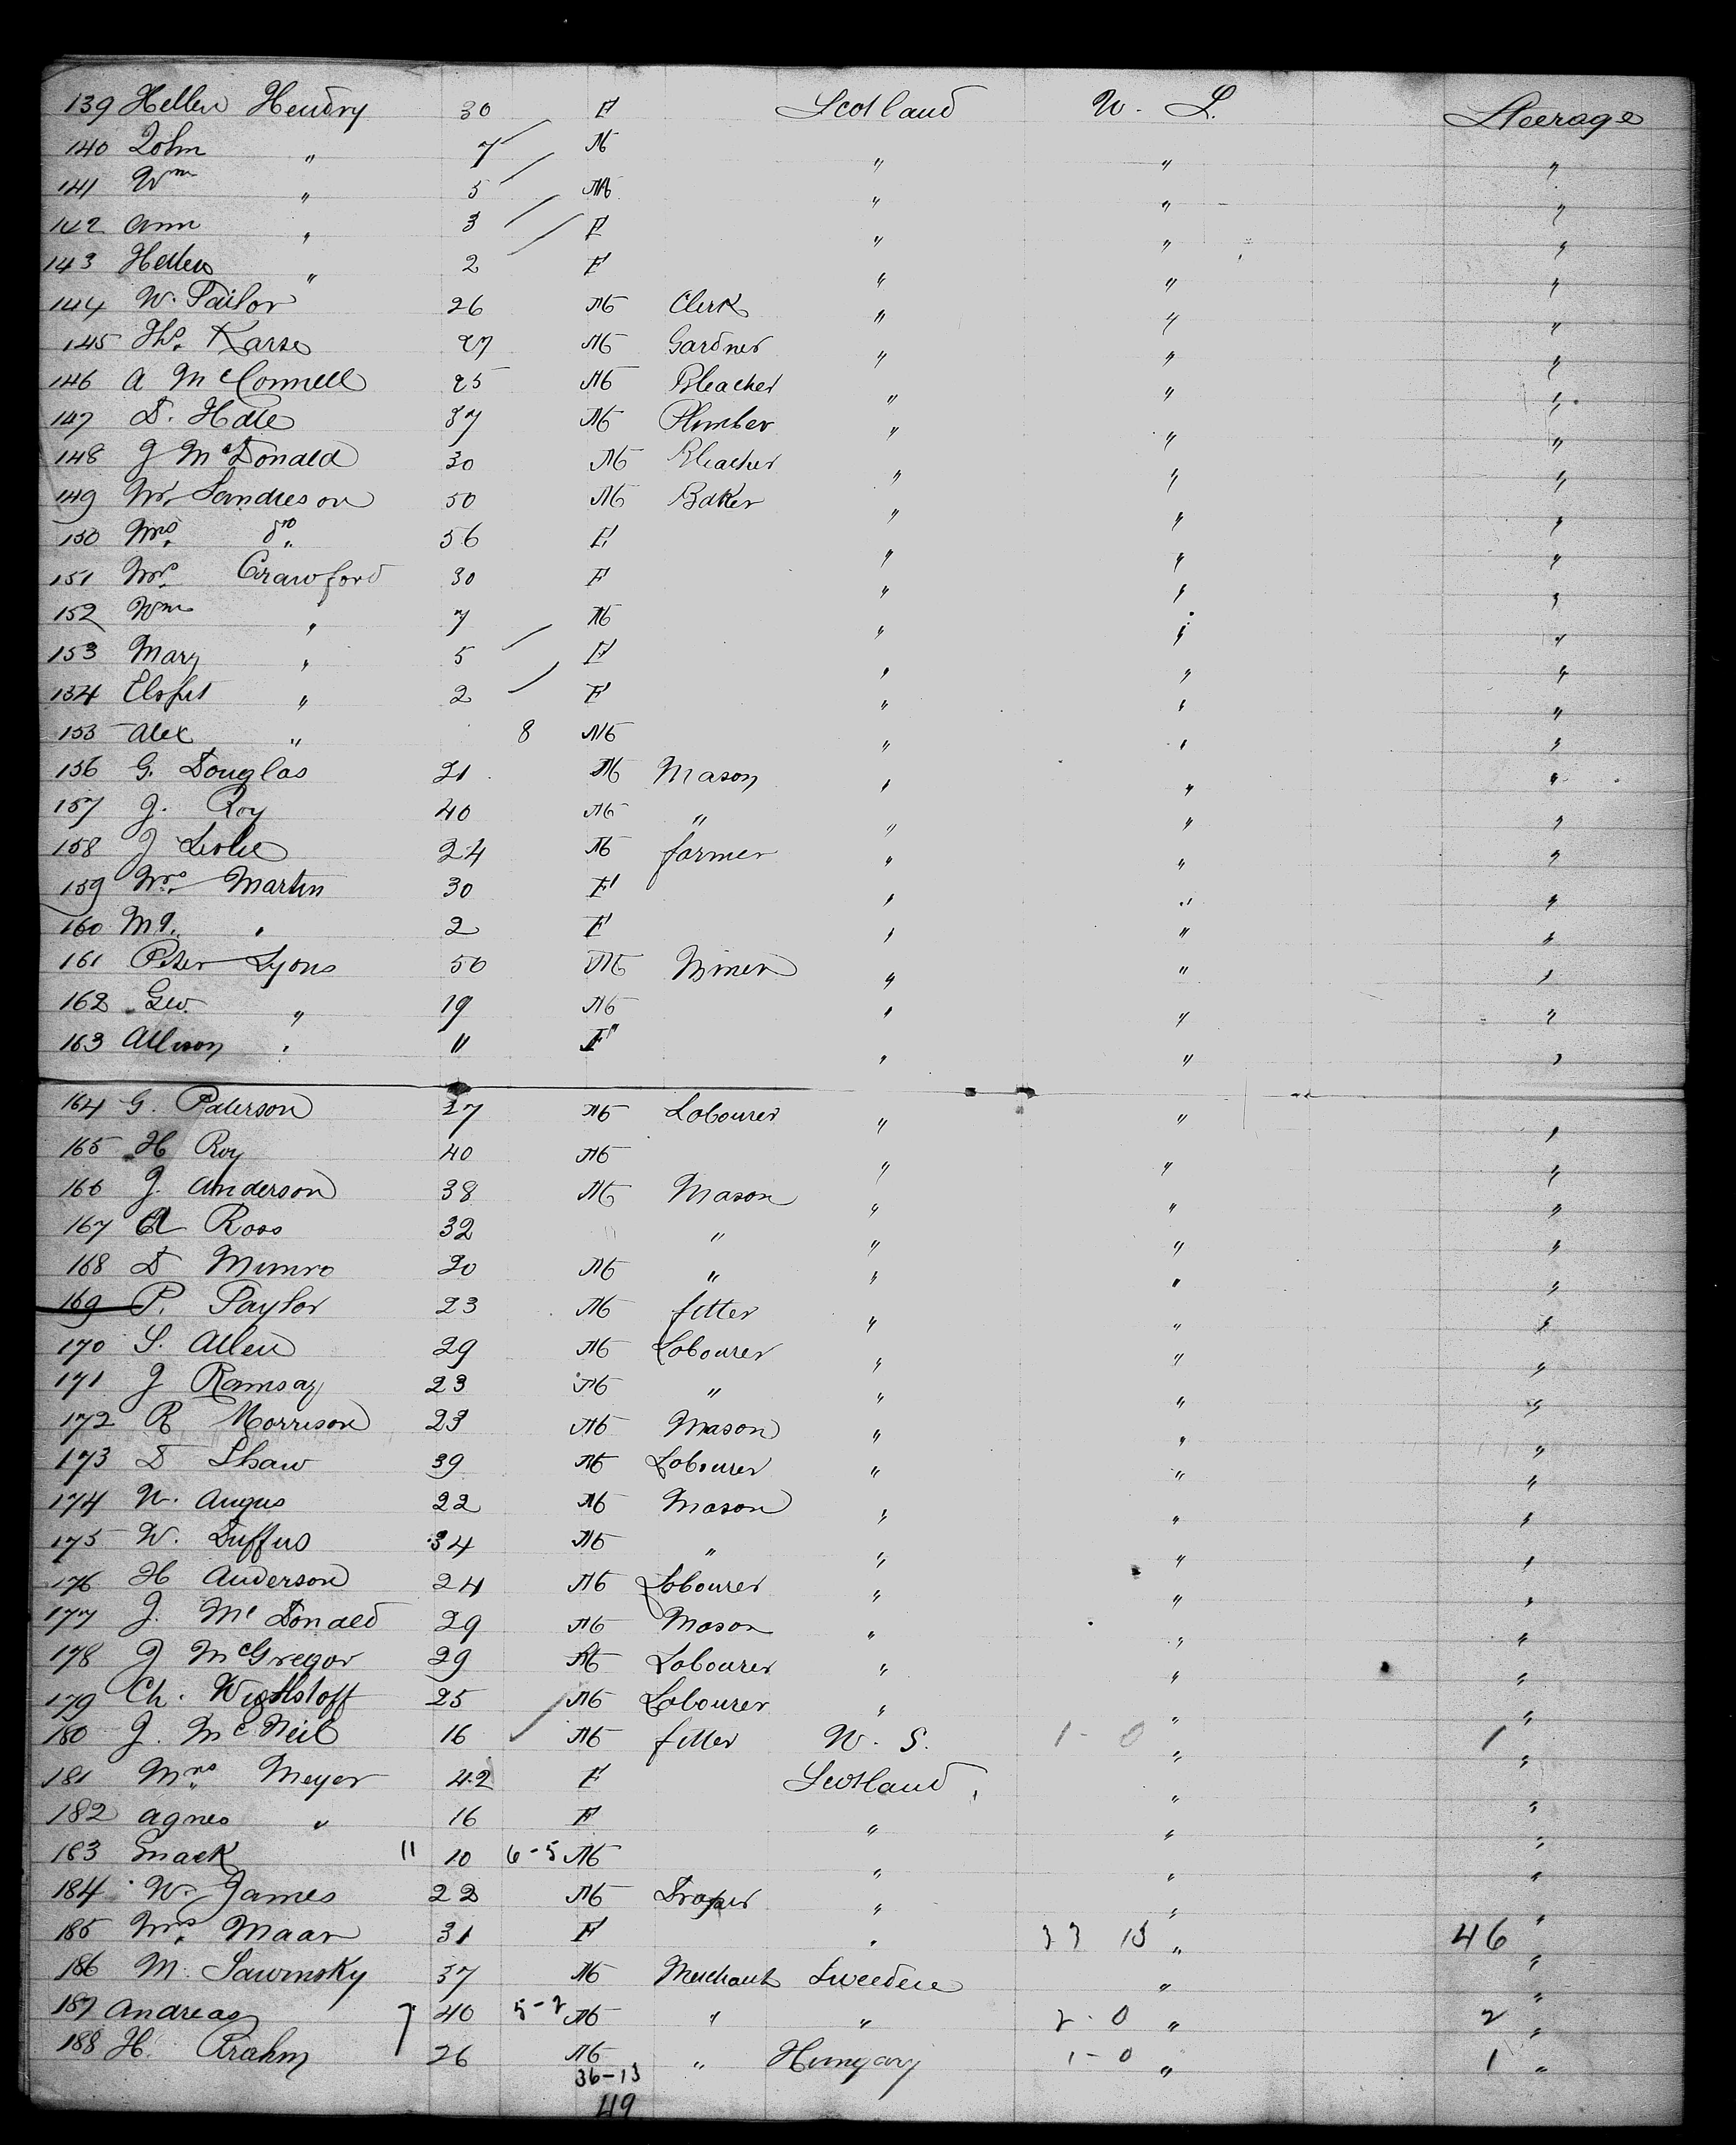 139 Hellen Hendry 30 F Scotland U. S. Steerage
140 John " 7 M " " "
141 Wm " 5 M " " "
142 Ann " 3 F " " "
143 Hellen " 2 F " " "
144 W. Tailor 26 M Clerk " " "
145 Ths. Karse 27 M Gardner " " "
146 A McConnell 25 M Bleacher " " "
147 D. Hale 37 M Plumber " " "
148 J McDonald 30 M Bleacher " " "
149 Mr. Sandieson 50 M Baker " " "
150 Mrs. do. 56 F " " "
151 Mrs. Crawford 30 F " " "
152 Wm " 7 M " " "
153 Mary " 5 F " " "
154 Elspet " 2 F " " "
155 Alex " 8 M " " "
156 G. Douglas 21 M Mason " " "
157 J. Roy 40 M " " " "
158 J Leslie 24 M farmer " " "
159 Mrs. Martin 30 F " " "
160 Mt. " 2 F " " "
161 Peter Lyons 50 M Miner " " "
162 Geo. " 19 M " " "
163 Allison " 11 F " " "
164 G. Paterson 27 M Labourer " " "
165 H Roy 40 M " " "
166 J. Anderson 38 M Mason " " "
167 A Ross 32 " " " "
168 D Munro 20 M " " " "
169 P. Taylor 23 M fitter " " "
170 S. Allen 29 M Labourer " " "
171 J Ramsay 23 M " " " "
172 R Morrison 23 M Mason " " "
173 D Shaw 39 M Labourer " " "
174 W. Angus 22 M Mason " " "
175 W. Duffus 34 M " " " "
176 H Anderson 24 M Labourer " " "
177 J. McDonald 29 M Mason " " "
178 J McGregor 29 M Labourer " " "
179 Ch. 25 M Labourer " " "
180 J. McNeil 16 M fitter U. S. 1-0 " 1 "
181 Mrs. Meyer 42 F Scotland " "
182 Agnes " 16 F " " "
183 Mack 11 10 6-5 M " " "
184 W. James 22 M Draper " " "
185 Mrs. Maar 31 F " 33 13 " 46 "
186 M. Sawinsky 37 M Merchant Sweeden " "
187 Andreas 7 40 5-2 M " " 2-0 " 2 "
188 H. Brahm 26 M " Hungary 1-0 " 1 "
36-13
49